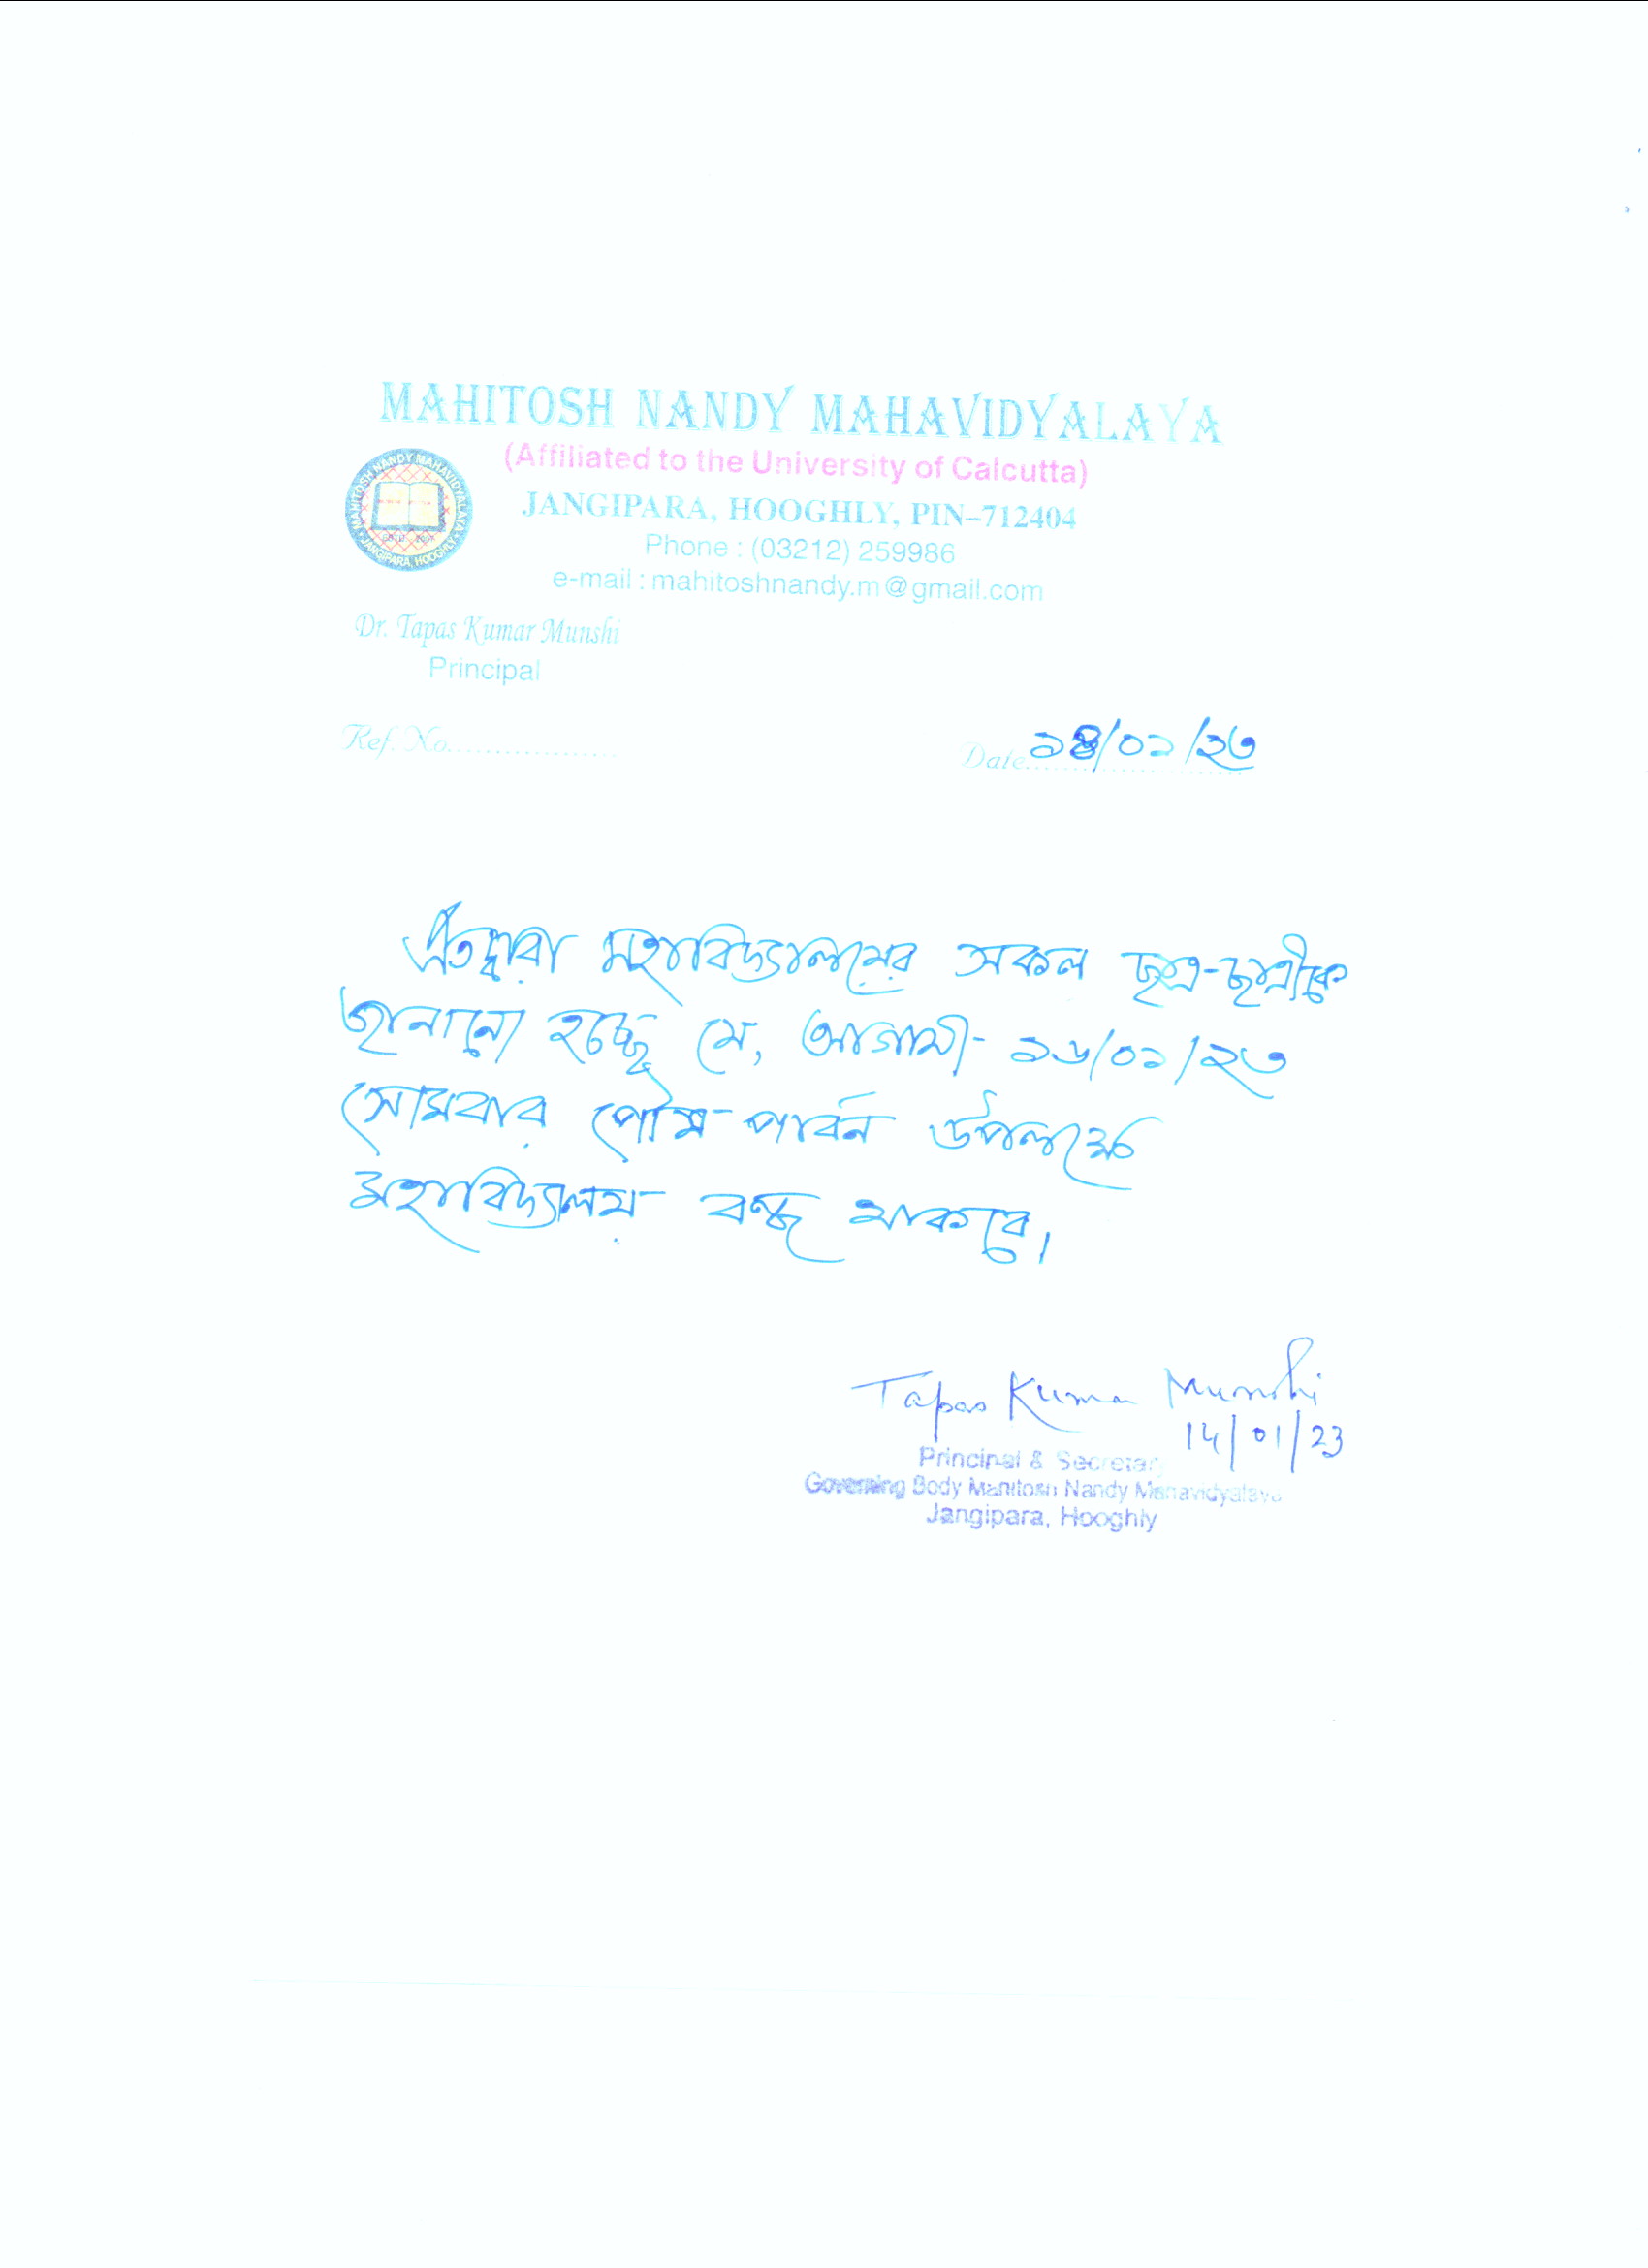 MAHITOSH NANDY MAHAVIDYALAYA
(Affiliated to the University of Calcutta)
JANGIPARA, HOOGHLY, PIN–712404
Phone : (03212) 259986
e-mail : mahitoshnandy.m@gmail.com
MAHITOSH NANDY MAHAVIDYALAYA
JANGIPARA, HOOGHLY
Dr. Tapas Kumar Munshi
Principal
Ref. No.
Date ১৪/০১/২৩
এতদ্বারা মহাবিদ্যালয়ের সকল ছাত্র-ছাত্রীকে
জানানো হচ্ছে যে, আগামী ১৬/০১/২৩
সোমবার পৌষ-পার্বন উপলক্ষে
মহাবিদ্যালয় বন্ধ থাকবে।
Tapas Kumar Munshi
14/01/23
Principal & Secretary
Governing Body Mahitosh Nandy Mahavidyalaya
Jangipara, Hooghly